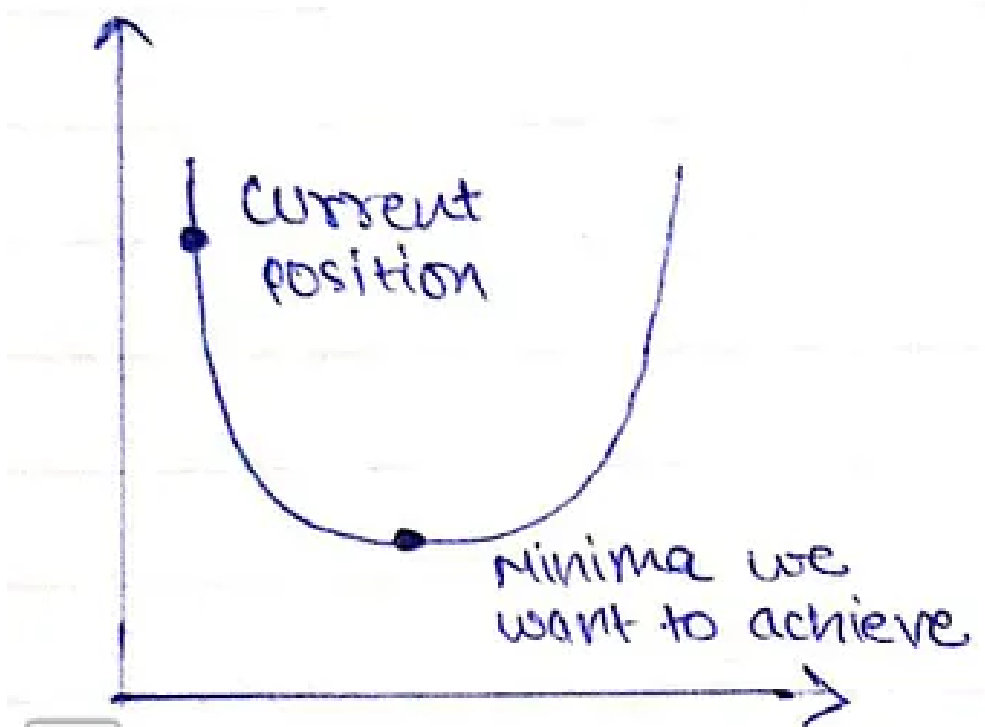 Current
position
Minima we
want to achieve